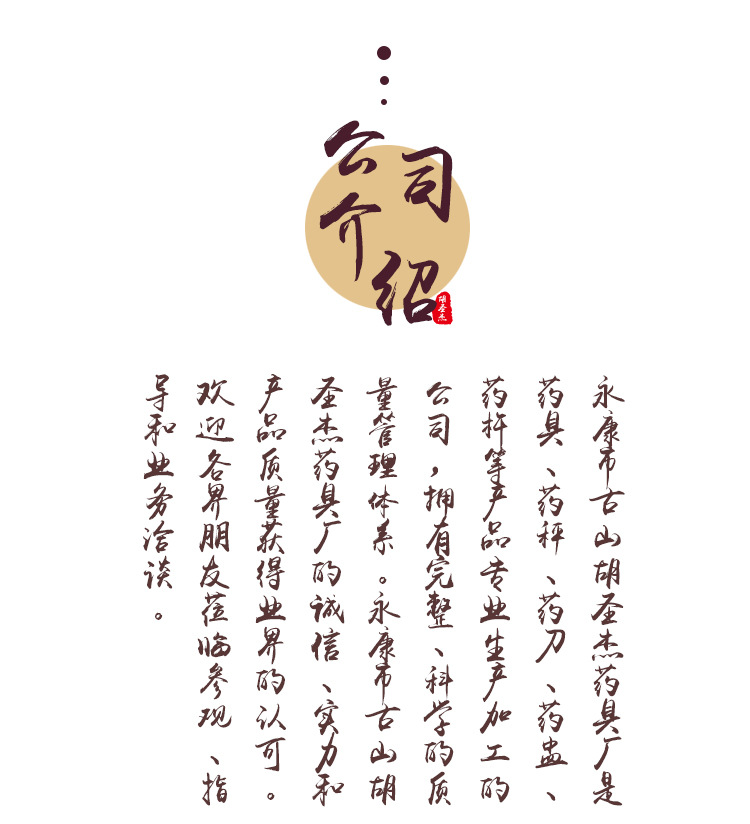 公司
介绍
胡圣杰
永康市古山胡圣杰药具厂是
药具、药秤、药刀、药盅、
药杵等产品专业生产加工的
公司，拥有完整、科学的质
量管理体系。永康市古山胡
圣杰药具厂的诚信、实力和
产品质量获得业界的认可。
欢迎各界朋友莅临参观、指
导和业务洽谈。